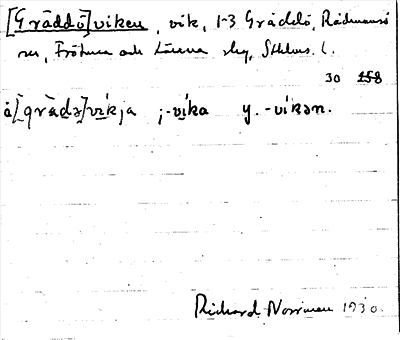 [Gräddö]viken, vik, 1-3 Gräddö, Rådmansö
sn, Frötuna och Länna skg, Sthlms l.
30 258
å [grädə]vikja ;-vika y. -vikən.
Richard Norrman 1930.